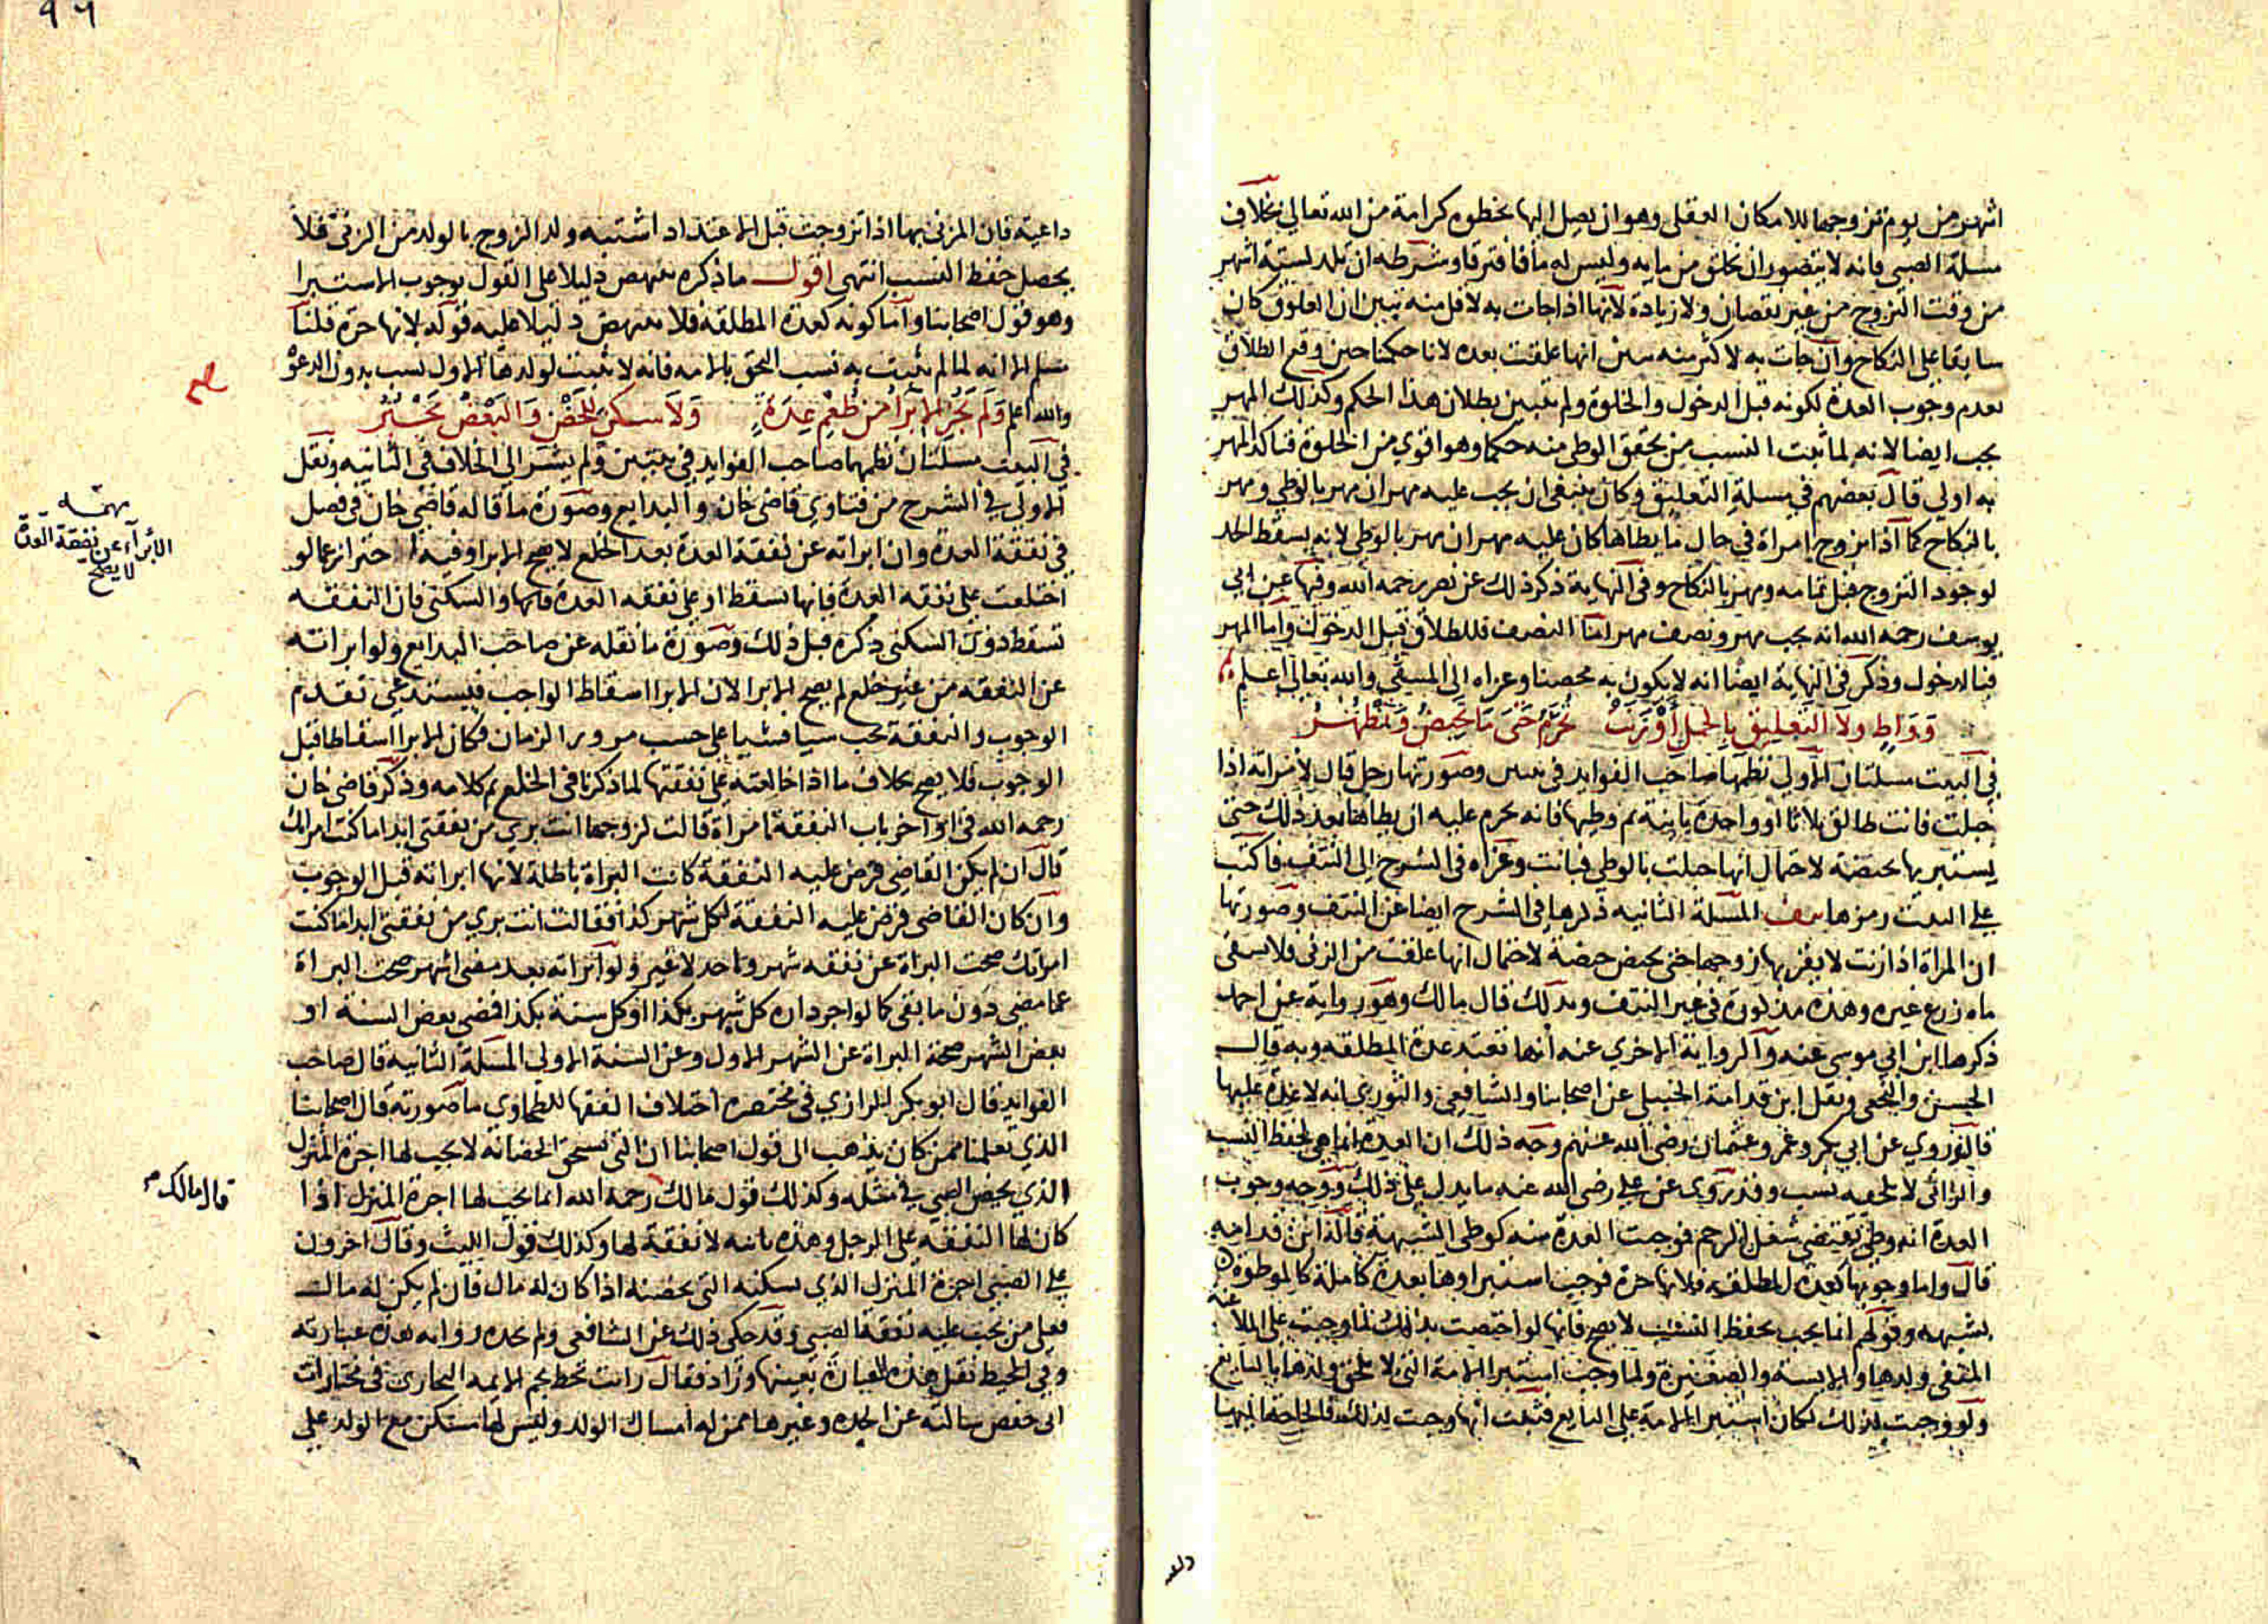 اشهر من يوم تزوجها للامكان العقلي وهو ان يصل اليها بخطوه كرامة من الله تعالى بخلاف
مسلة الصبي فانه لا يتصور ان يخلق من مايه وليس له ما فافترقا وشرطه ان تلد لستة اشهر
من وقت التزوج من غير نقصان ولا زيادة لانها اذا جات به لاقل منه تبين ان العلوق كان
سابقا على النكاح وان جات به لاكثر منه تبين انها علقت بعده لانا حكمنا حين وقع الطلاق
بعدم وجوب العدة لكونه قبل الدخول والخلوة ولم يتبين بطلان هذا الحكم وكذلك المهر
يجب ايضا لانه لما ثبت النسب من تحقق الوطى منه حكما وهو اقوي من الخلوة فتاكد المهر
به اولي قال بعضهم في مسلة التعليق وكان ينبغي ان يجب عليه مهران مهر بالوطي ومهر
بالنكاح كما اذا تزوج امراة في حال ما يطاها كان عليه مهران مهر بالوطي لانه يسقط الحد
لوجود التزوج قبل تمامه ومهر بالنكاح وفي النهاية ذكر ذلك عن رحمه الله وفيها عن ابي
يوسف رحمه الله انه يجب مهر ونصف مهر اما النصف فللطلاق قبل الدخول واما المهر
فبالدخول وذكر في النهاية ايضا انه لا يكون به محصنا وعزاه الى المنتقى والله تعالى اعلم
وواط ولا التعليق بالحبل ابترت تحرم حتى ما تحيض وتطهر
في البيت مسلتان الاولي نظمها صاحب الفوايد في بيتين وصورتها رجل قال لامراته اذا
حبلت فانت طالق ثلاثا او واحدة باينة ثم وطيها فانه يحرم عليه ان يطاها بعد ذلك حتى
يستبريها بحيضة لاحتمال انها حبلت بالوطي فبانت وعزاه في الشرح الى النتف فاكتب
علي البيت رمزها نتف المسلة الثانيه ذكرها في الشرح ايضا عن النتف وصورتها
ان المراة اذا زنت لا يقربها زوجها حتى تحيض حيضة لاحتمال انها علقت من الزنى فلا يسقي
ماه زرع غيره وهذه مذكورة في غير النتف وبذلك قال مالك وهو رواية عن احمد
ذكرها ابن ابي موسى عنه والرواية الاخري عنه انها تعتد عدة المطلقه وبه قال
الحسن والنخعي ونقل ابن قدامة الحنبلي عن اصحابنا والشافعي والثوري انه لا عدة عليها
قال وروي عن ابي بكر وعمر وعثمان رضى الله عنهم وجه ذلك ان العدة انما هي لحفظ النسب
والزاني لا يلحقه نسب وقد روى عن علي رضى الله عنه ما يدل على ذلك ووجه وجوب
العدة انه وطي يقتضي شغل الرحم فوجبت العدة منه كوطى الشبهة قاله ابن قدامه
قال واما وجوبها كعدة المطلقه فلانها حرة فوجب استبراوها بعدة كاملة كالموطوة
بشبهه وقولهم انما يجب لحفظ النسب لا يصح فانها لو اختصت بذلك لما وجبت على الملاعنة
المنفي ولدها والايسة والصغيرة ولما وجب استبرا الامة التى لا يلحق ولدها بالبايع
ولو وجبت لذلك لكان استبرا الامة على البايع فثبت انها وجبت لذلك فالحاجة اليها
ولعبه
٩٦
داعية فان المزني بها اذا تزوجت قبل الاعتداد اشتبه ولد الزوج بالولد من الزني فلا
يحصل حفظ النسب انتهى اقول ما ذكره ينتهض دليلا على القول بوجوب الاستبرا
وهو قول اصحابنا واما كونه كعدة المطلقة فلا ينتهض دليلا عليه قوله لانها حرة قلنا
مسلم الا انه لما لم يثبت به نسب التحق بالامه فانه لا يثبت لولدها الاول نسب بدون الدعوة
والله اعلم ولم يجز الابرا من طعم عدة ولا سكن للحضن والبعض يجبر
في البيت مسلتان نظمها صاحب الفوايد في بيتين ولم يشر الي الخلاف في الثانيه ونقل
الاولي في الشرح من فتاوي قاضي خان والبدايع وصورة ما قاله قاضي خان في فصل
في نفقة العدة وان ابراته عن نفقة العدة بعد الخلع لا يصح الابرا وفيه احتراز عما لو
اختلعت على نفقه العدة فانها تسقط او على نفقه العدة والسكنى فان النفقه
تسقط دون السكنى ذكره قبل ذلك وصورة ما نقله عن صاحب البدايع ولو ابراته
عن النفقه من غير خلع لم يصح الابرا لان الابرا اسقاط الواجب فيستدعي تقدم
الوجوب والنفقة تجب شيا فشيا على حسب مرور الزمان فكان الابرا اسقاطا قبل
الوجوب فلا يصح بخلاف ما اذا خالعته على نفقتها لما ذكرنا في الخلع تم كلامه وذكر قاضي خان
رحمه الله في اواخر باب النفقة امراة قالت لزوجها انت بري من نفقتي ابدا ما كنت امراتك
قال ان لم يكن القاضي فرض عليه النفقة كانت البراة باطلة لانها ابراته قبل الوجوب
وان كان القاضي فرض عليه النفقة لكل شهر كذا فقالت انت بري من نفقتي ابدا ما كنت
امراتك صحت البراة عن نفقه شهر واحد لا غير ولو ابراته بعد مضى اشهر صحت البراة
عما مضي دون ما بقي كما لو اجر داره كل شهر بكذا او كل سنة بكذا فمضى بعض السنة او
بعض الشهر صحة البراة عن الشهر الاول وعن السنة الاولى المسلة الثانية قال صاحب
الفوايد قال ابو بكر الرازي في مختصره اختلاف الفقها للطحاوي ما صورته قال اصحابنا
الذي تعلمنا ممن كان يذهب الى قول اصحابنا ان التى تستحق الحضانة لا يجب لها اجرة المنزل
الذي يحضن الصبي في مثله وكذلك قول مالك رحمه الله انما يجب لها اجرة المنزل اذا
كان لها النفقه على الرجل وهذه باينه لا نفقة لها وكذلك قول الليث وقال اخرون
على الصبي اجرة المنزل الذي تسكنه التى تحضنه اذا كان له مال فان لم يكن له مال
فعلى من يجب عليه نفقة الصبي وقد حكى ذلك عن الشافعي ولم نجده روايه هذه عبارته
وفي المحيط نقل هذه العبارة بعينها وزاد فقال رايت بخط نجم الايمه البخاري في مختارات
ابى حفص سالته عن الجدة وغيرها ممن له امساك الولد وليس لها مسكن مع الولد على
مهمة
الابراء عن نفقة العدة
لا يصح
قال مالك